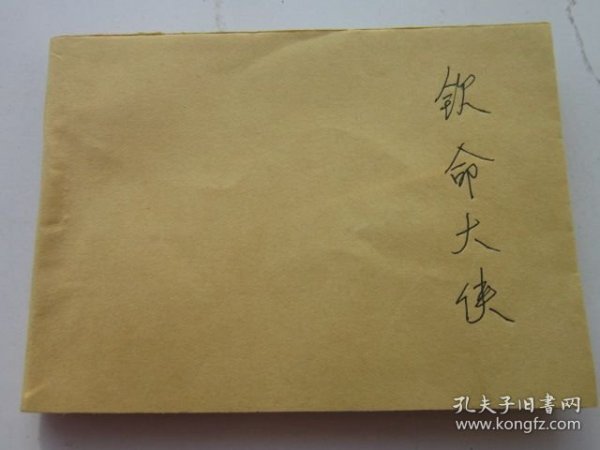 钦命大侠
孔夫子旧書网
www.kongfz.com